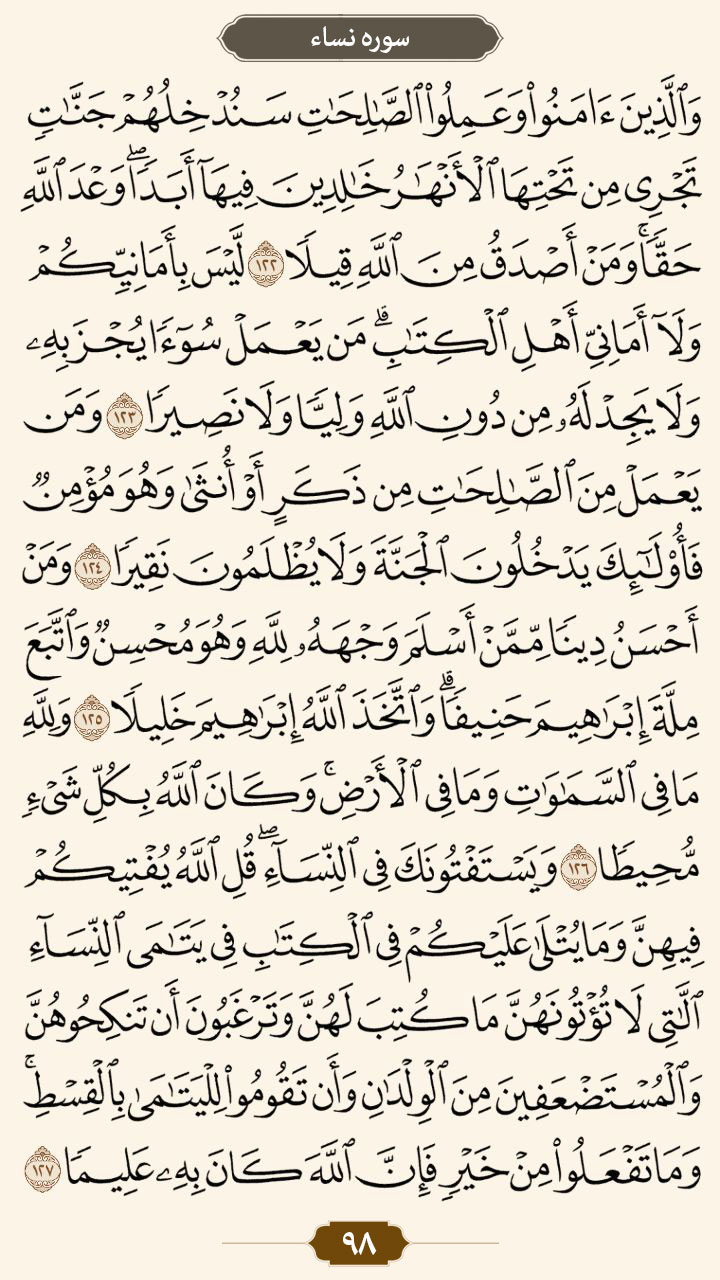 سوره نساء
وَٱلَّذِينَ ءَامَنُواْ وَعَمِلُواْ ٱلصَّـٰلِحَـٰتِ سَنُدۡخِلُهُمۡ جَنَّـٰتٖ
تَجۡرِي مِن تَحۡتِهَا ٱلۡأَنۡهَـٰرُ خَـٰلِدِينَ فِيهَآ أَبَدٗاۖ وَعۡدَ ٱللَّهِ
حَقّٗاۚ وَمَنۡ أَصۡدَقُ مِنَ ٱللَّهِ قِيلٗا ١٢٢ لَّيۡسَ بِأَمَانِيِّكُمۡ
وَلَآ أَمَانِيِّ أَهۡلِ ٱلۡكِتَـٰبِۗ مَن يَعۡمَلۡ سُوٓءٗا يُجۡزَ بِهِۦ
وَلَا يَجِدۡ لَهُۥ مِن دُونِ ٱللَّهِ وَلِيّٗا وَلَا نَصِيرٗا ١٢٣ وَمَن
يَعۡمَلۡ مِنَ ٱلصَّـٰلِحَـٰتِ مِن ذَكَرٍ أَوۡ أُنثَىٰ وَهُوَ مُؤۡمِنٞ
فَأُوْلَـٰٓئِكَ يَدۡخُلُونَ ٱلۡجَنَّةَ وَلَا يُظۡلَمُونَ نَقِيرٗا ١٢٤ وَمَنۡ
أَحۡسَنُ دِينٗا مِّمَّنۡ أَسۡلَمَ وَجۡهَهُۥ لِلَّهِ وَهُوَ مُحۡسِنٞ وَٱتَّبَعَ
مِلَّةَ إِبۡرَٰهِيمَ حَنِيفٗاۗ وَٱتَّخَذَ ٱللَّهُ إِبۡرَٰهِيمَ خَلِيلٗا ١٢٥ وَلِلَّهِ
مَا فِي ٱلسَّمَٰوَٰتِ وَمَا فِي ٱلۡأَرۡضِۚ وَكَانَ ٱللَّهُ بِكُلِّ شَيۡءٖ
مُّحِيطٗا ١٢٦ وَيَسۡتَفۡتُونَكَ فِي ٱلنِّسَآءِۖ قُلِ ٱللَّهُ يُفۡتِيكُمۡ
فِيهِنَّ وَمَا يُتۡلَىٰ عَلَيۡكُمۡ فِي ٱلۡكِتَـٰبِ فِي يَتَـٰمَى ٱلنِّسَآءِ
ٱلَّـٰتِي لَا تُؤۡتُونَهُنَّ مَا كُتِبَ لَهُنَّ وَتَرۡغَبُونَ أَن تَنكِحُوهُنَّ
وَٱلۡمُسۡتَضۡعَفِينَ مِنَ ٱلۡوِلۡدَٰنِ وَأَن تَقُومُواْ لِلۡيَتَـٰمَىٰ بِٱلۡقِسۡطِۚ
وَمَا تَفۡعَلُواْ مِنۡ خَيۡرٖ فَإِنَّ ٱللَّهَ كَانَ بِهِۦ عَلِيمٗا ١٢٧
٩٨